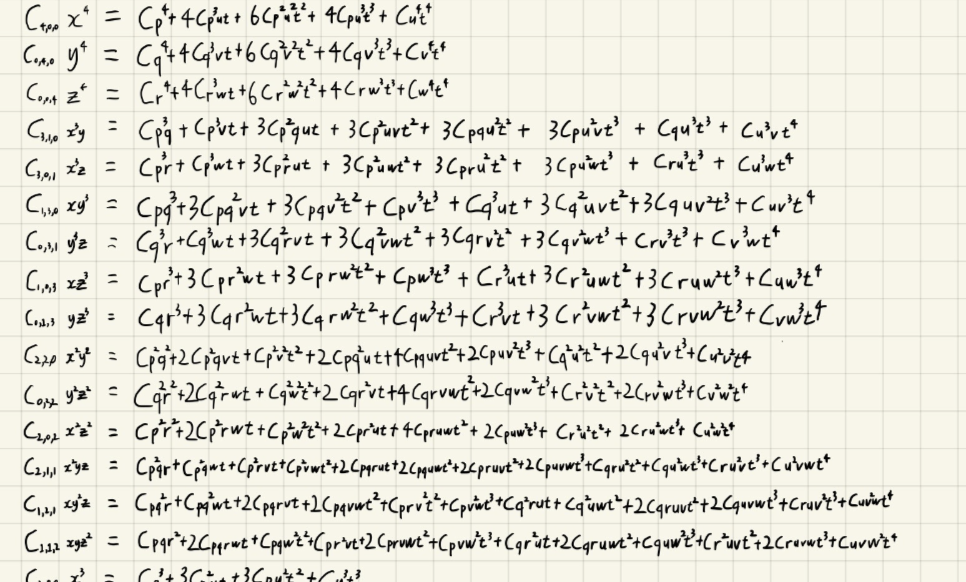 C₄,₀,₀ x⁴ = Cp⁴+4Cp³ut+6Cp²u²t²+4Cpu³t³+Cu⁴t⁴
C₀,₄,₀ y⁴ = Cq⁴+4Cq³vt+6Cq²v²t²+4Cqv³t³+Cv⁴t⁴
C₀,₀,₄ z⁴ = Cr⁴+4Cr³wt+6Cr²w²t²+4Crw³t³+Cw⁴t⁴
C₃,₁,₀ x³y = Cp³q+Cp³vt+3Cp²qut+3Cp²uvt²+3Cpqu²t²+3Cpu²vt³+Cqu³t³+Cu³vt⁴
C₃,₀,₁ x³z = Cp³r+Cp³wt+3Cp²rut+3Cp²uwt²+3Cpru²t²+3Cpu²wt³+Cru³t³+Cu³wt⁴
C₁,₃,₀ xy³ = Cpq³+3Cpq²vt+3Cpqv²t²+Cpv³t³+Cq³ut+3Cq²uvt²+3Cquv²t³+Cuv³t⁴
C₀,₃,₁ y³z = Cq³r+Cq³wt+3Cq²rvt+3Cq²vwt²+3Cqrv²t²+3Cqv²wt³+Crv³t³+Cv³wt⁴
C₁,₀,₃ xz³ = Cpr³+3Cpr²wt+3Cprw²t²+Cpw³t³+Cr³ut+3Cr²uwt²+3Cruw²t³+Cuw³t⁴
C₀,₁,₃ yz³ = Cqr³+3Cqr²wt+3Cqrw²t²+Cqw³t³+Cr³vt+3Cr²vwt²+3Crvw²t³+Cvw³t⁴
C₂,₂,₀ x²y² = Cp²q²+2Cp²qvt+Cp²v²t²+2Cpq²ut+4Cpquvt²+2Cpuv²t³+Cq²u²t²+2Cqu²vt³+Cu²v²t⁴
C₀,₂,₂ y²z² = Cq²r²+2Cq²rwt+Cq²w²t²+2Cqr²vt+4Cqrvwt²+2Cqvw²t³+Cr²v²t²+2Crv²wt³+Cv²w²t⁴
C₂,₀,₂ x²z² = Cp²r²+2Cp²rwt+Cp²w²t²+2Cpr²ut+4Cpruwt²+2Cpuw²t³+Cr²u²t²+2Cru²wt³+Cu²w²t⁴
C₂,₁,₁ x²yz = Cp²qr+Cp²qwt+Cp²rvt+Cp²vwt²+2Cpqrut+2Cpquwt²+2Cpruvt²+2Cpuvwt³+Cqru²t²+Cqu²wt³+Cru²vt³+Cu²vwt⁴
C₁,₂,₁ xy²z = Cpq²r+Cpq²wt+2Cpqrvt+2Cpqvwt²+Cprv²t²+Cpv²wt³+Cq²rut+Cq²uwt²+2Cqruvt²+2Cquvwt³+Cruv²t³+Cuv²wt⁴
C₁,₁,₂ xyz² = Cpqr²+2Cpqrwt+Cpqw²t²+Cpr²vt+2Cprvwt²+Cpvw²t³+Cqr²ut+2Cqruwt²+Cquw²t³+Cr²uvt²+2Cruvwt³+Cuvw²t⁴